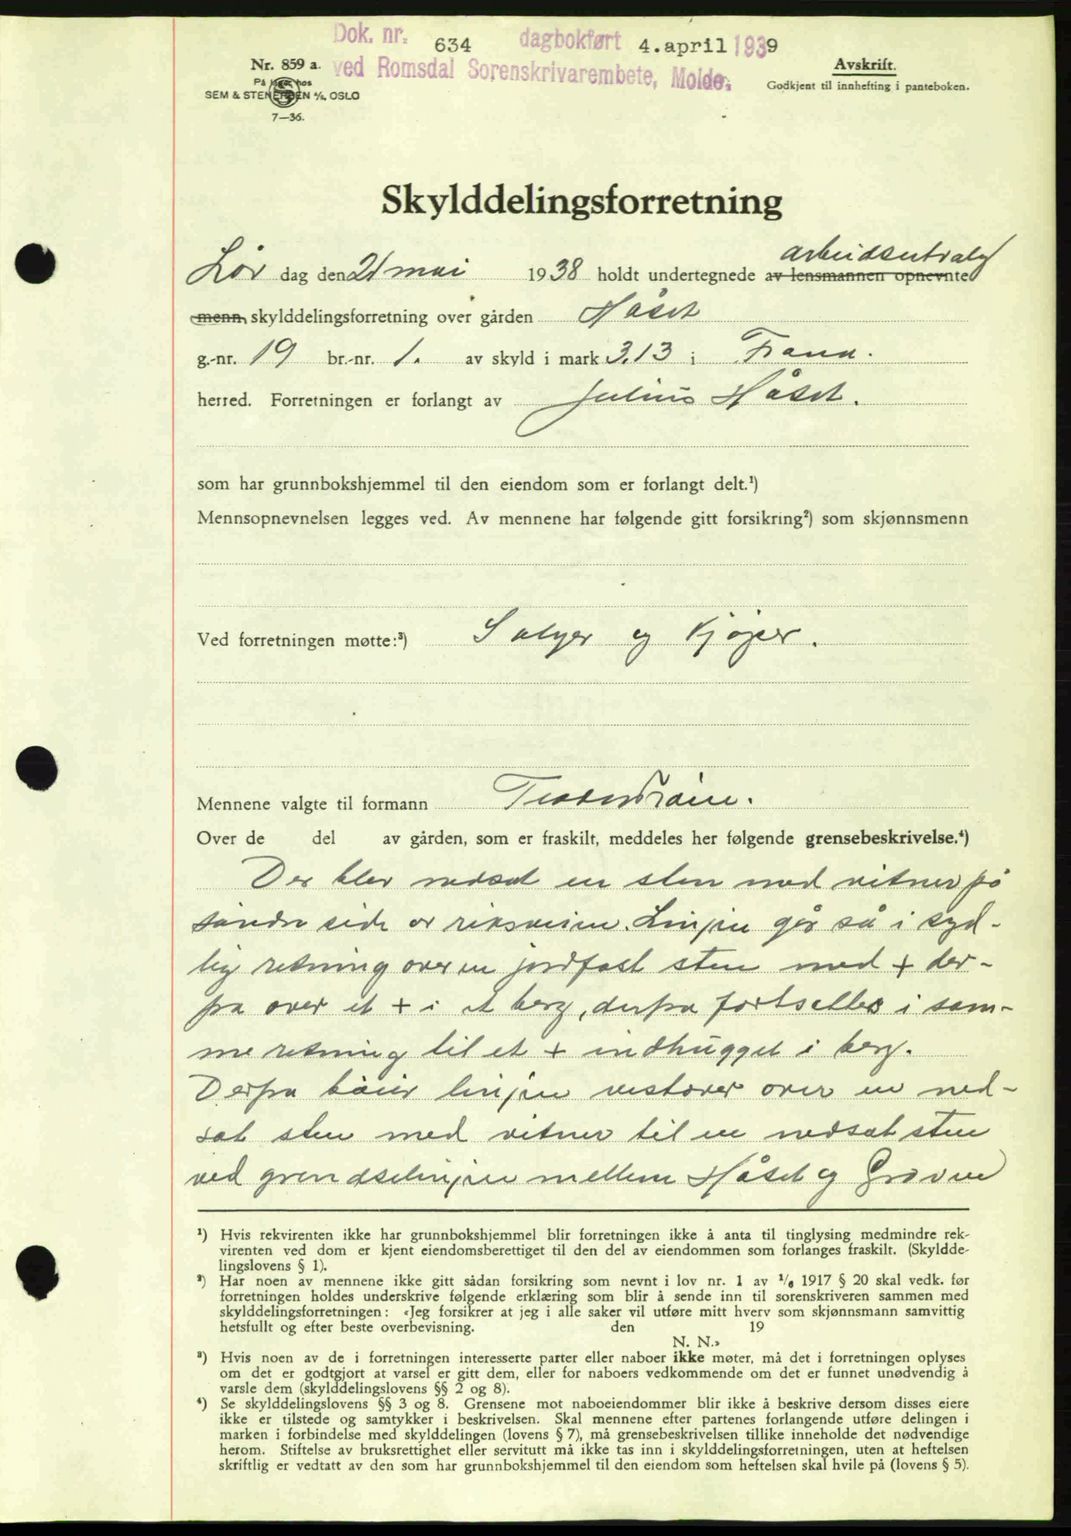 Dok. nr. 634 dagbokført 4.april 1939
ved Romsdal Sorenskrivarembete, Molde.
Nr. 859 a.
På lager hos
SEM & STENERSEN A/S, OSLO
7—36.
Avskrift.
Godkjent til innhefting i panteboken.
Skylddelingsforretning
arbeidsutvalg
Lør dag den 21 mai 1938 holdt undertegnede av lensmannen opnevnte
menn skylddelingsforretning over gården Håset
g.-nr. 19 br.-nr. 1. av skyld i mark 3.13 i Fræna.
herred. Forretningen er forlangt av Julius Håset.
som har grunnbokshjemmel til den eiendom som er forlangt delt.¹)
Mennsopnevnelsen legges ved. Av mennene har følgende gitt forsikring²) som skjønnsmenn
Ved forretningen møtte:³) Selger og Kjøper.
Mennene valgte til formann
Over de del av gården, som er fraskilt, meddeles her følgende grensebeskrivelse.⁴)
Der blev nedsat en sten med vitner på
søndre side av riksveien. Linjen går så i syd-
lig retning over en jordfast sten med + der-
fra over et + i et berg, derfra fortsettes i sam-
me retning til et + indhugget i berg.
Derfra bøier linjen vestover over en ned-
sat sten med vitner til en nedsat sten
ved grendselinjen mellem Håset og
¹) Hvis rekvirenten ikke har grunnbokshjemmel blir forretningen ikke å anta til tinglysing medmindre rek-
virenten ved dom er kjent eiendomsberettiget til den del av eiendommen som forlanges fraskilt. (Skyldde-
lingslovens § 1).
²) Har noen av mennene ikke gitt sådan forsikring som nevnt i lov nr. 1 av ¹/₆ 1917 § 20 skal vedk. før
forretningen holdes underskrive følgende erklæring som blir å sende inn til sorenskriveren sammen med
skylddelingsforretningen: «Jeg forsikrer at jeg i alle saker vil utføre mitt hverv som skjønnsmann samvittig
hetsfullt og efter beste overbevisning. den 19
N. N.»
³) Hvis noen av de i forretningen interesserte parter eller naboer ikke møter, må det i forretningen oplyses
om det er godtgjort at varsel er gitt dem, eller for naboers vedkommende om det er funnet unødvendig å
varsle dem (skylddelingslovens §§ 2 og 8).
⁴) Se skylddelingslovens §§ 3 og 8. Grensene mot naboeiendommer blir ikke å beskrive dersom disses eiere
ikke er tilstede og samtykker i beskrivelsen. Skal mennene efter partenes forlangende utføre delingen i
marken i forbindelse med skylddelingen (lovens § 7), må grensebeskrivelsen tillike inneholde det nødvendige
herom. Stiftelse av bruksrettighet eller servitutt må ikke tas inn i skylddelingsforretningen, uten at heftelsen
skriftlig er vedtatt av den som har grunnbokshjemmel til den eiendom som heftelsen skal hvile på (lovens § 5).